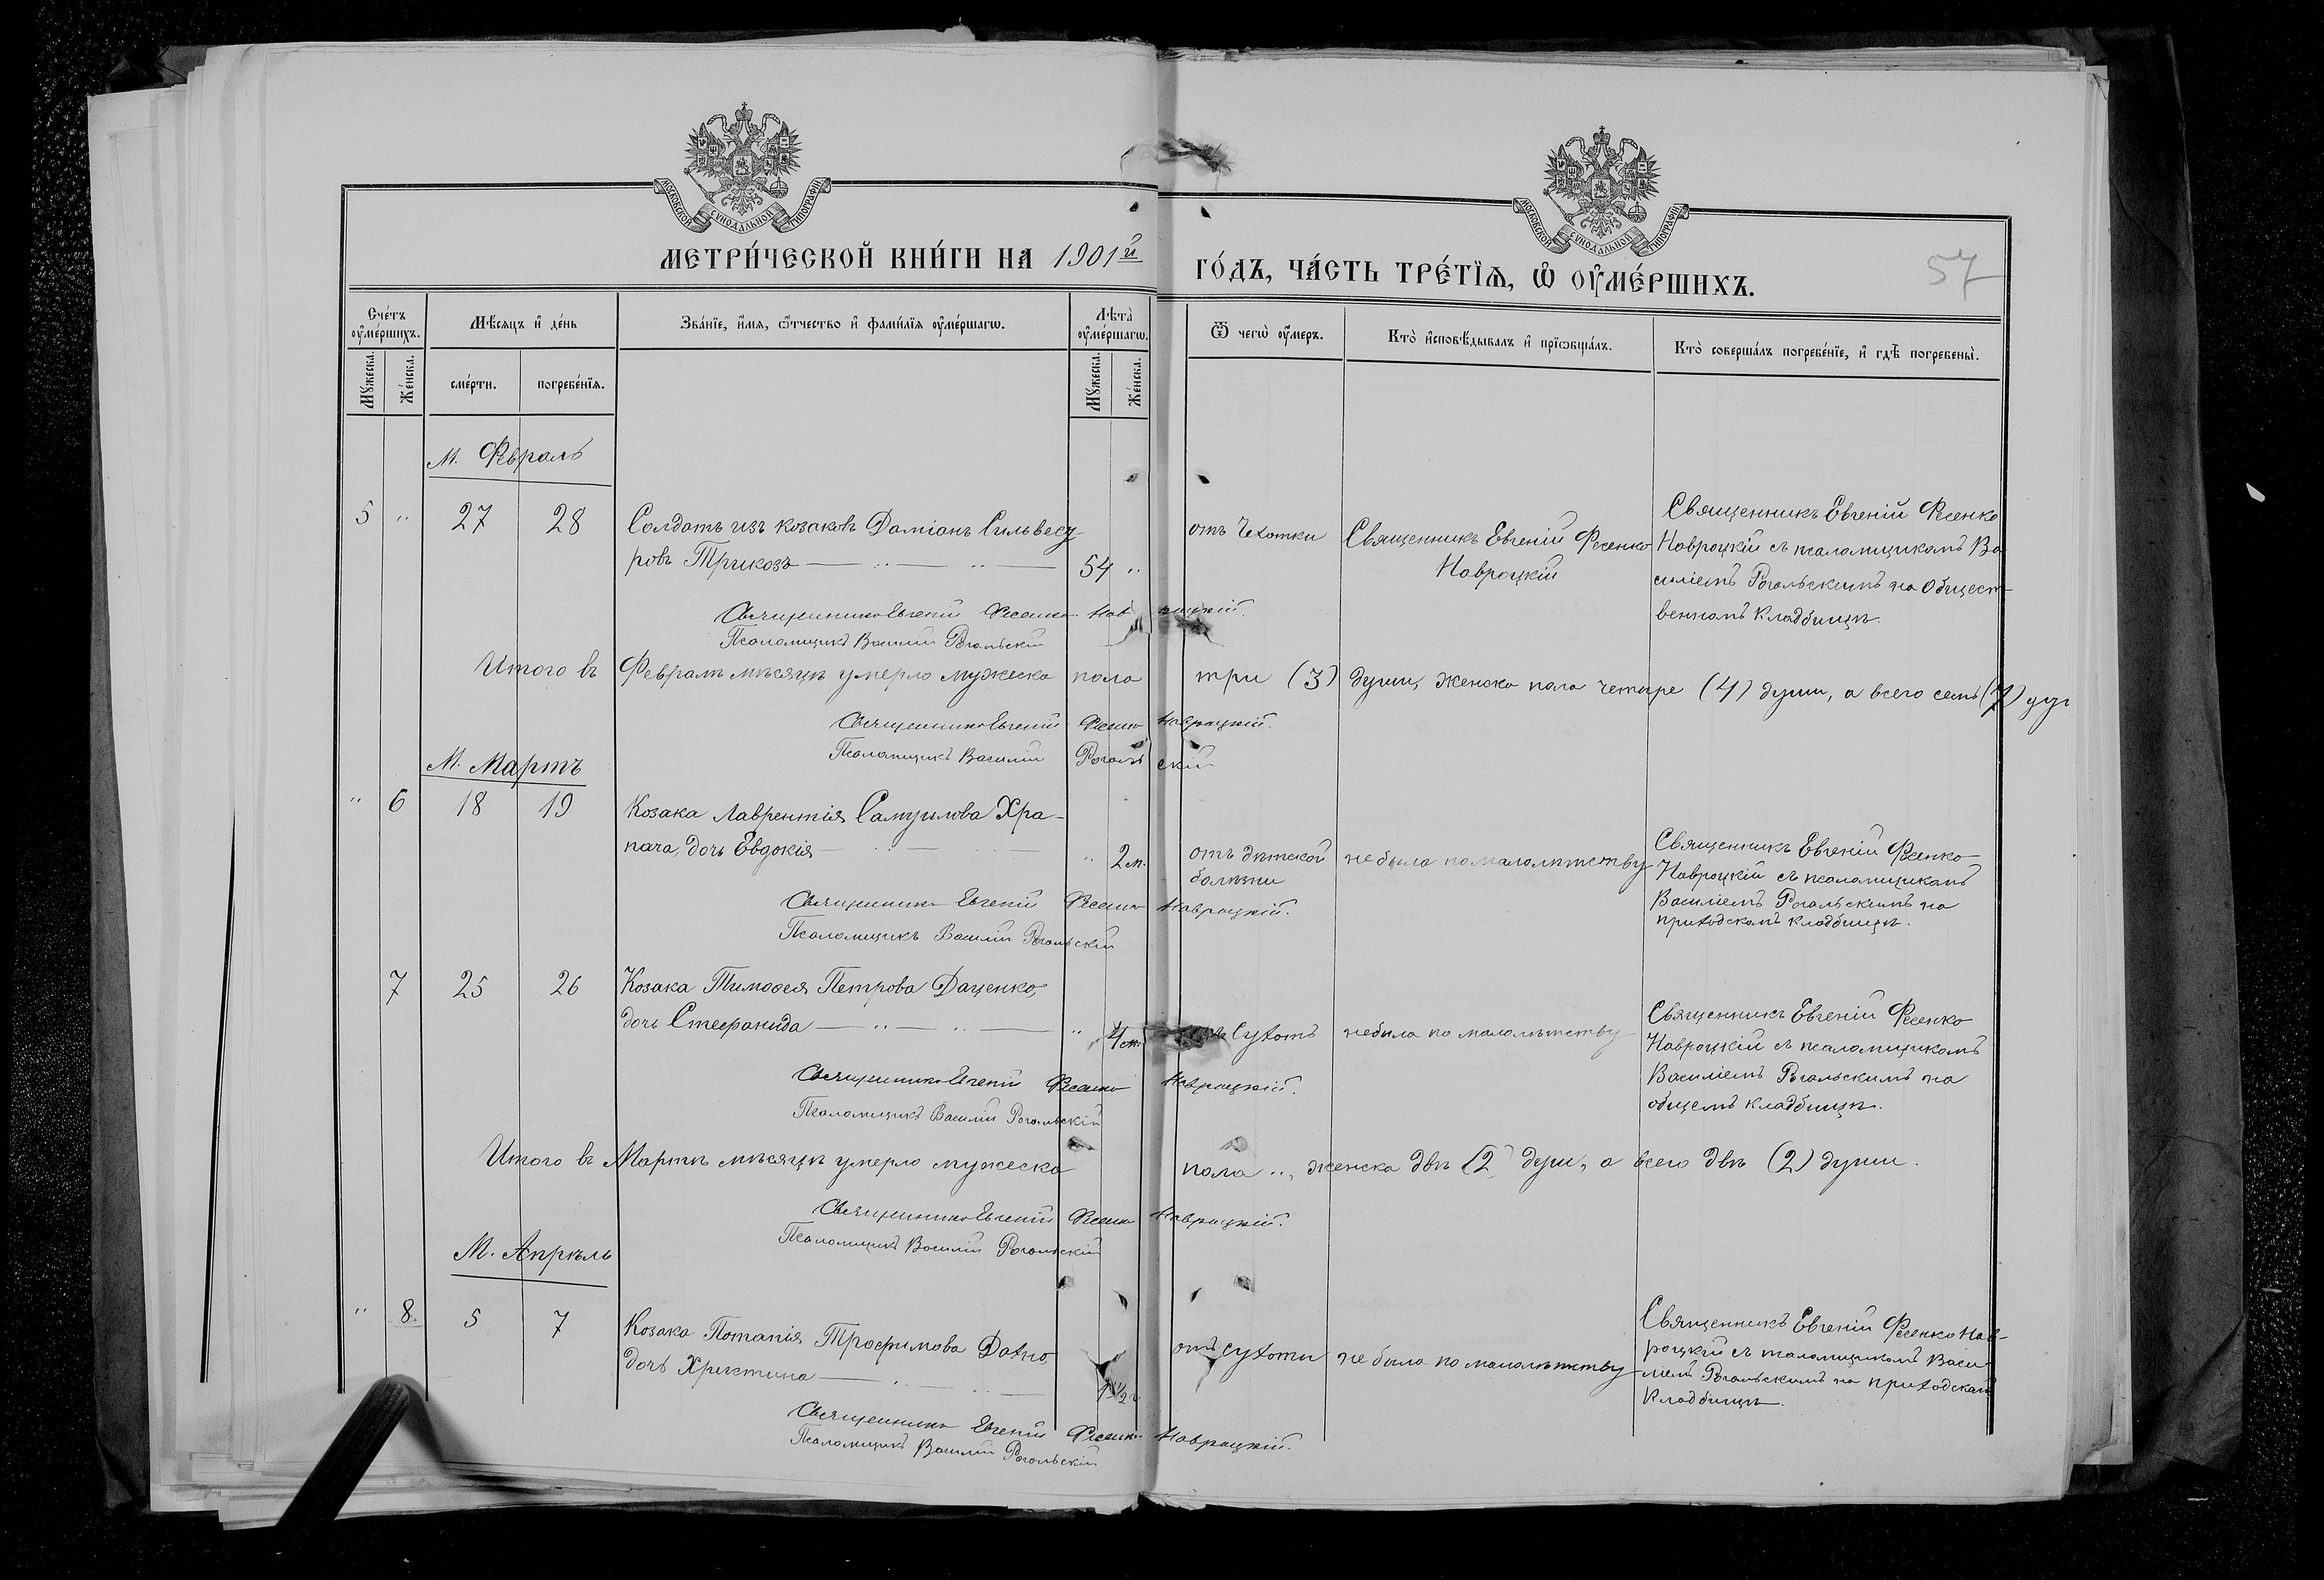 МОСКОВСКОЙ СУНОДАЛЬНОЙ ТИПОГРАФІИ
МОСКОВСКОЙ СУНОДАЛЬНОЙ ТИПОГРАФІИ
МЕТРИ́ЧЕСКОЙ КНИ́ГИ НА 1901й
ГО́ДЪ, ЧА́СТЬ ТРЕ́ТІѦ, Ѡ҆ ОУ҆МЕ́РШИХЪ.
57
Сче́тъ оу҆ме́ршихъ.
Мѣ́сяцъ и҆ де́нь
Зва́нїе, и҆́мя, ѻ҆́тчество и҆ фами́лїя оу҆ме́ршагѡ.
Лѣ́та оу҆ме́ршагѡ.
Ѿ чегѡ̀ оу҆́меръ.
Кто̀ и҆сповѣ́дывалъ и҆ прїѡбща́лъ.
Кто̀ соверша́лъ погребе́нїе, и҆ гдѣ̀ погребены̀.
Мꙋ́жеска.
Же́нска.
сме́рти.
погребе́нїѧ.
Мꙋ́жеска.
Же́нска.
М. Февраль
5 " 27 28 Солдатъ изъ козаковъ Даміанъ Сильвест-
ровъ Трикозъ 54 "
отъ Чехотки
Священникъ Евгеній Фесенко
Навроцкій
Священникъ Евгеній Фесенко
Навроцкій съ псаломщикомъ Ва
силіемъ Рогальскимъ на Общест-
венномъ Кладбищѣ.
Священникъ Евгеній Фесенко-Навроцкій.
Псаломщикъ Василій Рогальскій
Итого въ Февралѣ мѣсяцѣ умерло мужеска пола три (3) души, женска пола четыре (4) души, а всего семь (7) душ
Священникъ Евгеній Фесенко Навроцкій.
Псаломщикъ Василій Рогальскій
М. Мартъ
" 6 18 19 Козака Лаврентія Самуилова Хра-
пача, дочь Евдокія " 2 м.
отъ дѣтской
болѣзни
не была по малолѣтству
Священникъ Евгеній Фесенко-
Навроцкій съ псаломщикомъ
Василіемъ Рогальскимъ на
приходскомъ кладбищѣ.
Священникъ Евгеній Фесенко Навроцкій.
Псаломщикъ Василій Рогальскій
7 25 26 Козака Тимоѳея Петрова Даценко,
дочь Стефанида " 4 м.
Сухотъ
не была по малолѣтству
Священникъ Евгеній Фесенко
Навроцкій съ псаломщикомъ
Василіемъ Рогальскимъ на
общемъ кладбищѣ.
Священникъ Евгеній Фесенко Навроцкій.
Псаломщикъ Василій Рогальскій
Итого въ Мартѣ мѣсяцѣ умерло мужеска пола ", женска двѣ (2) души, а всего двѣ (2) души.
Священникъ Евгеній Фесенко Навроцкій.
Псаломщикъ Василій Рогальскій
М. Апрѣль
" 8. 5 7 Козака Потапія Трофимова
дочь Христина
отъ сухоты
не была по малолѣтству
Священникъ Евгеній Фесенко Нав-
роцкій съ псаломщикомъ Васи-
ліемъ Рогальскимъ на приходскомъ
Кладбищѣ.
Священникъ Евгеній Фесенко Навроцкій.
Псаломщикъ Василій Рогальскій